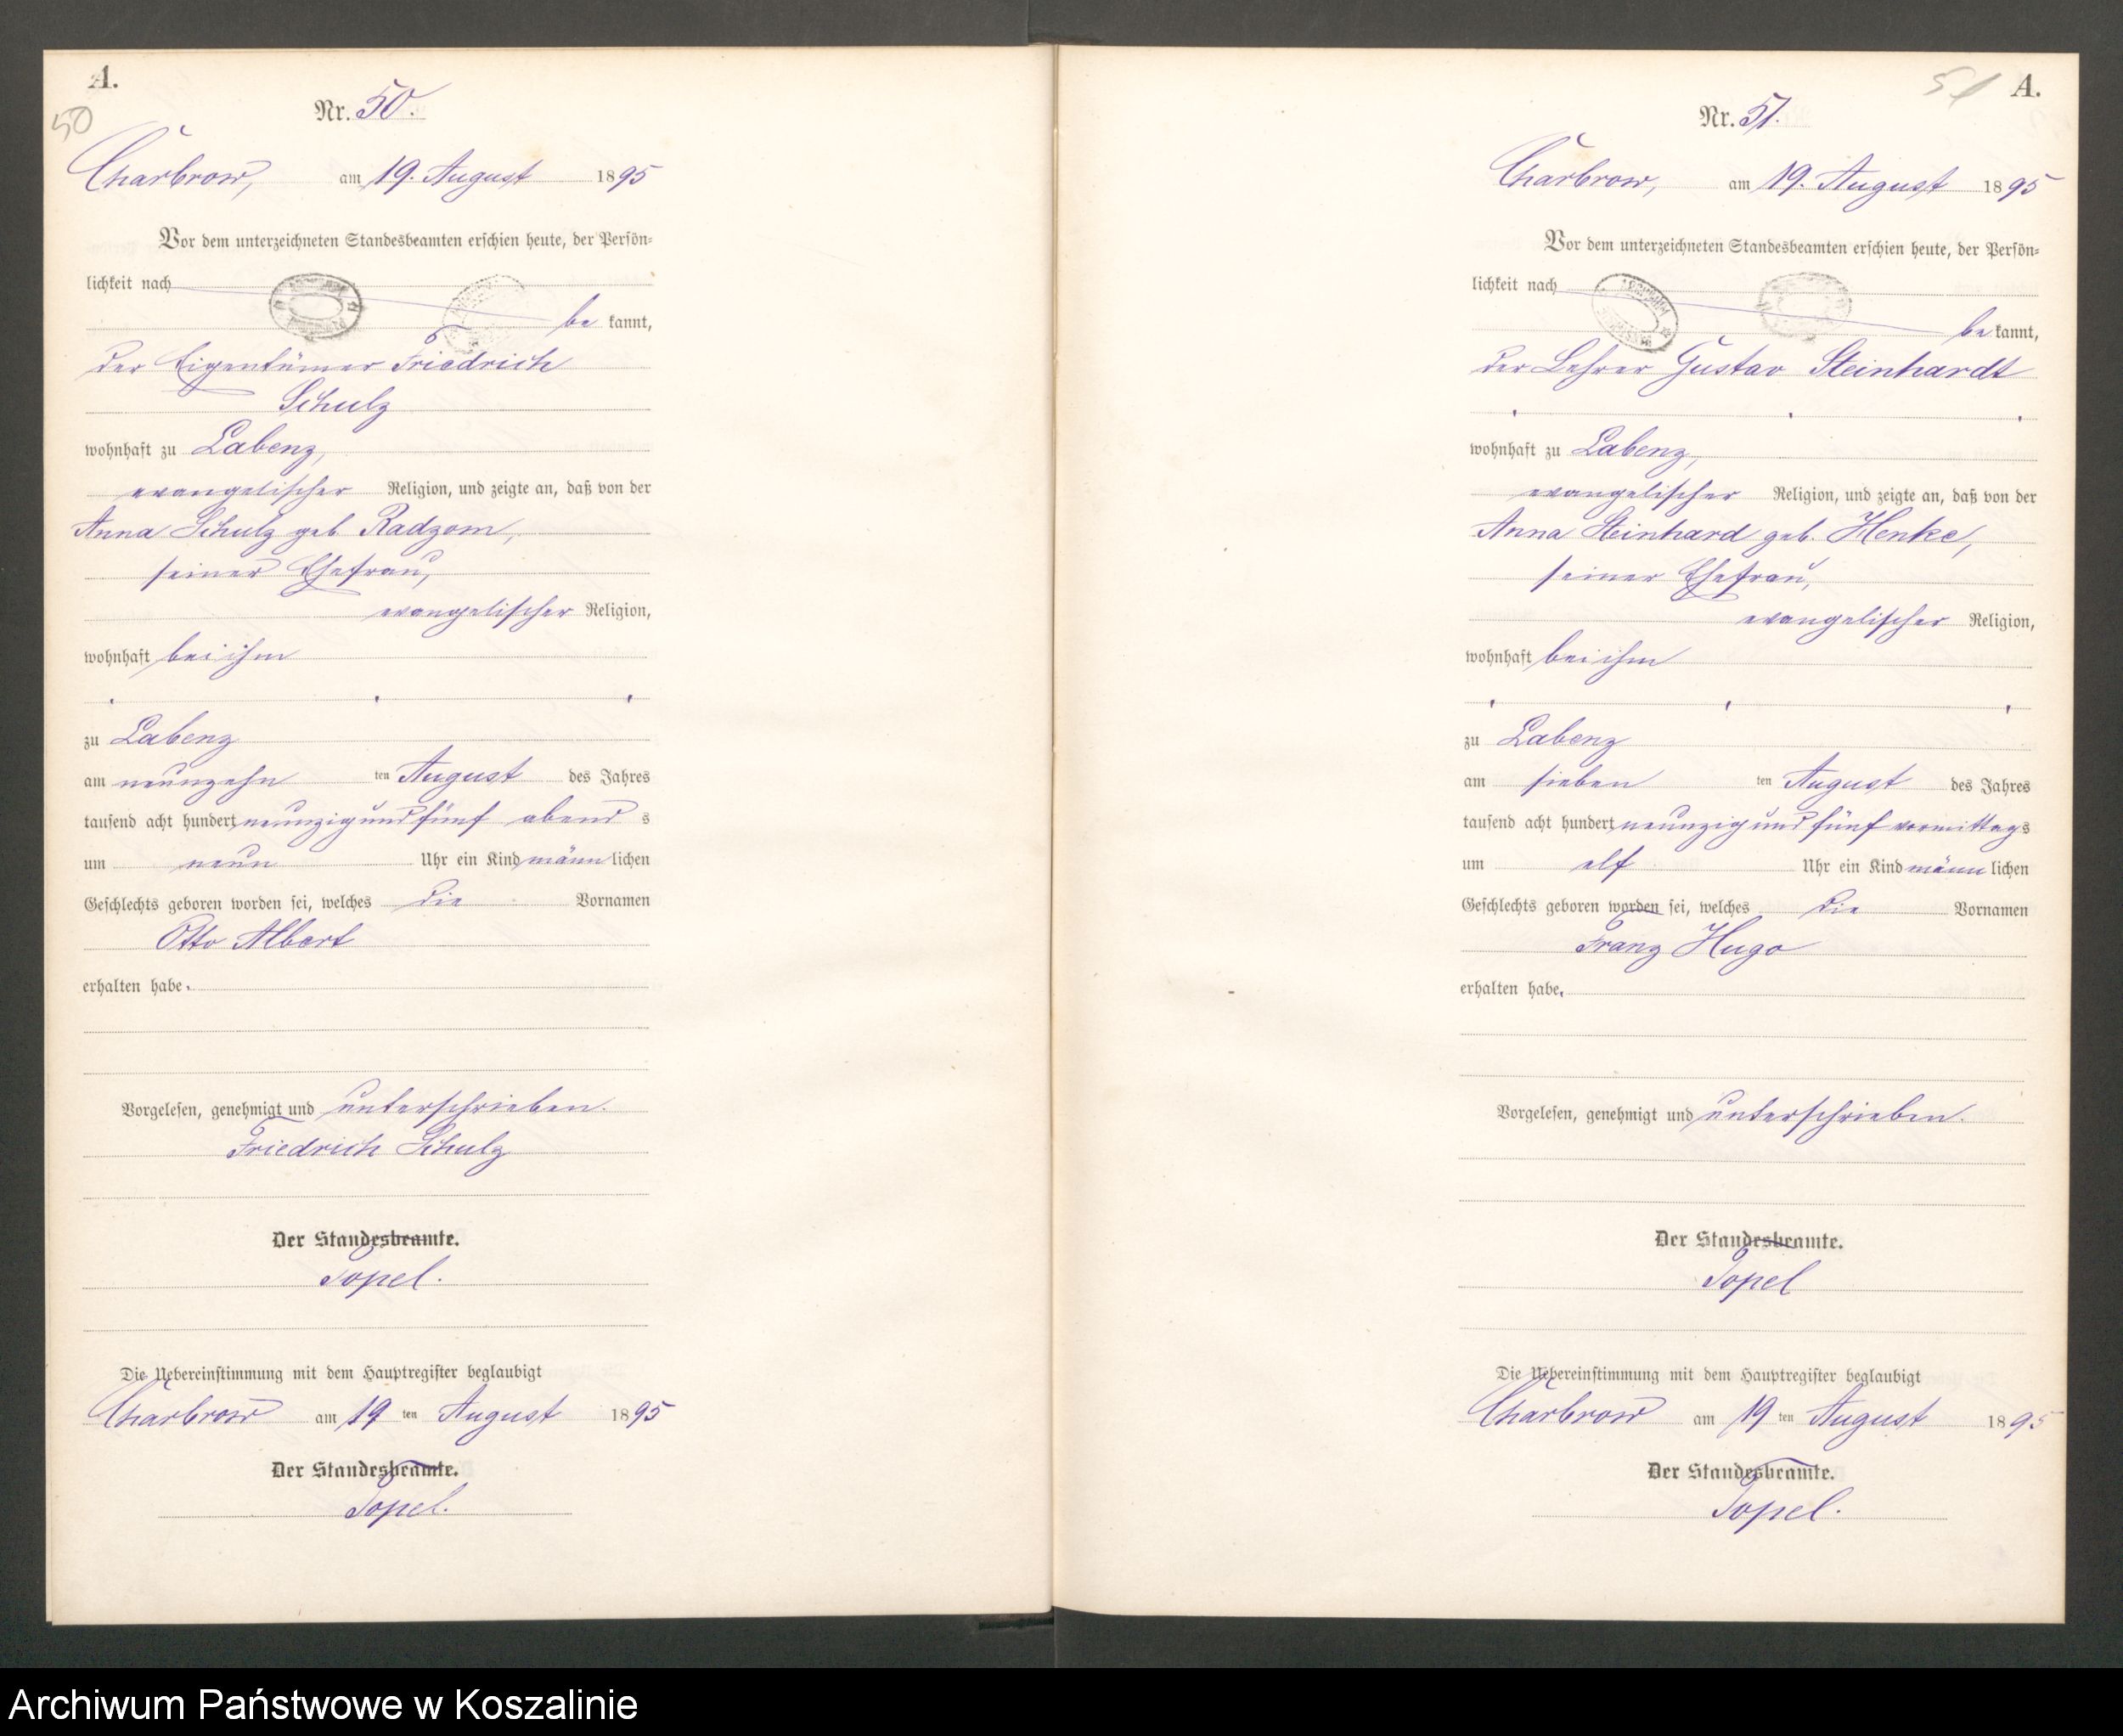 A.
50
Nr. 50.
Charbrow, am 19. August 1895
Vor dem unterzeichneten Standesbeamten erschien heute, der Persön-
lichkeit nach
be kannt,
der Eigentümer Friedrich
Schulz
wohnhaft zu Labenz,
evangelischer Religion, und zeigte an, daß von der
Anna Schulz geb. Radzom,
seiner Ehefrau,
evangelischer Religion,
wohnhaft bei ihm
zu Labenz
am neunzehn ten August des Jahres
tausend acht hundert neunzig und fünf abend s
um neun Uhr ein Kind männ lichen
Geschlechts geboren worden sei, welches die Vornamen
Otto Albert
erhalten habe.
Vorgelesen, genehmigt und unterschrieben.
Friedrich Schulz
Der Standesbeamte.
Topel.
Die Uebereinstimmung mit dem Hauptregister beglaubigt
Charbrow am 19 ten August 1895
Der Standesbeamte.
Topel.
51 A.
Nr. 51.
Charbrow, am 19. August 1895
Vor dem unterzeichneten Standesbeamten erschien heute, der Persön-
lichkeit nach
be kannt,
der Lehrer Gustav Steinhardt
wohnhaft zu Labenz,
evangelischer Religion, und zeigte an, daß von der
Anna Steinhard geb. Henke,
seiner Ehefrau,
evangelischer Religion,
wohnhaft bei ihm
zu Labenz
am sieben ten August des Jahres
tausend acht hundert neunzig und fünf vormittags
um elf Uhr ein Kind männ lichen
Geschlechts geboren worden sei, welches die Vornamen
Franz Hugo
erhalten habe.
Vorgelesen, genehmigt und unterschrieben.
Der Standesbeamte.
Topel
Die Uebereinstimmung mit dem Hauptregister beglaubigt
Charbrow am 19 ten August 1895
Der Standesbeamte.
Topel.
Archiwum Państwowe w Koszalinie